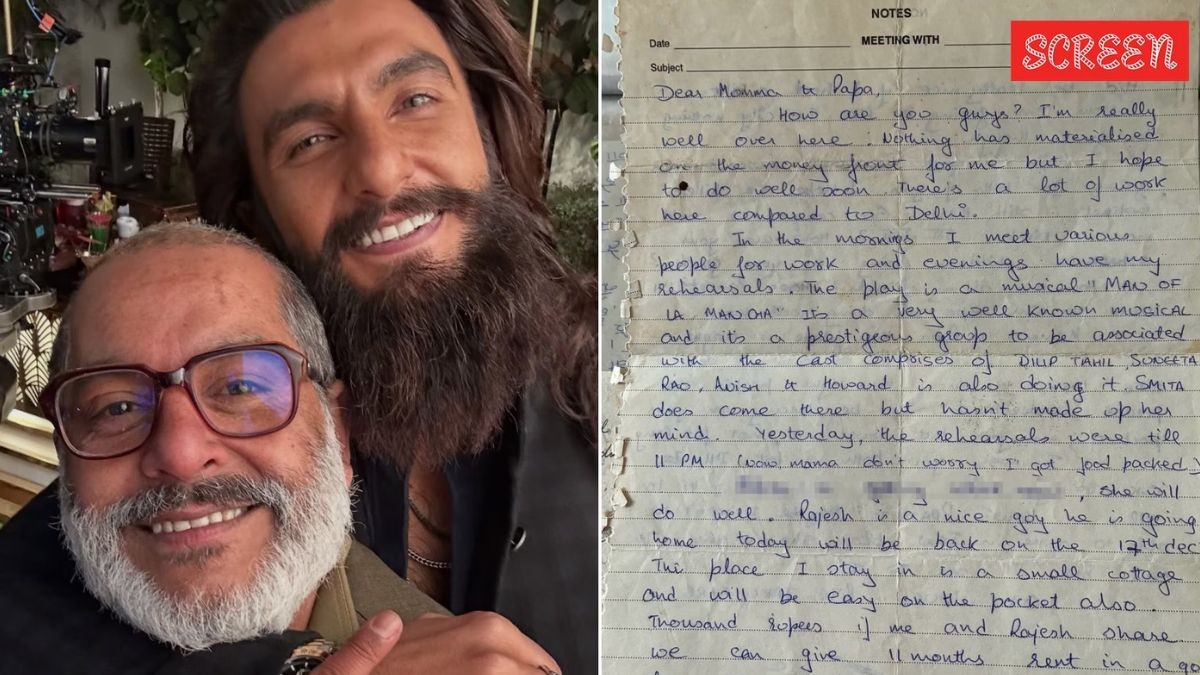 NOTES
Date MEETING WITH
Subject
SCREEN
Dear Momma & Papa,
How are you guys? I'm really
well over here. Nothing has materialised
on the money front for me but I hope
to do well soon There's a lot of work
here compared to Delhi.
In the mornings I meet various
people for work and evenings have my
rehearsals. The play is a musical "MAN OF
LA MANCHA" Its a very well known MUSICAL
and its a prestigeous group to be associated
with the Cast comprises of DILIP TAHIL, SUNEETA
RAO, Avish & Howard is also doing it. SMITA
does come there but hasn't made up her
mind. Yesterday, the rehearsals were till
11 PM (now mama don't worry I got food packed)
, she will
do well. Rajesh is a nice guy he is going
home today will be back on the 17th dec
The place I stay in is a small cottage
and will be easy on the pocket also.
Thousand rupees if me and Rajesh share.
we can give 11 months rent in a go